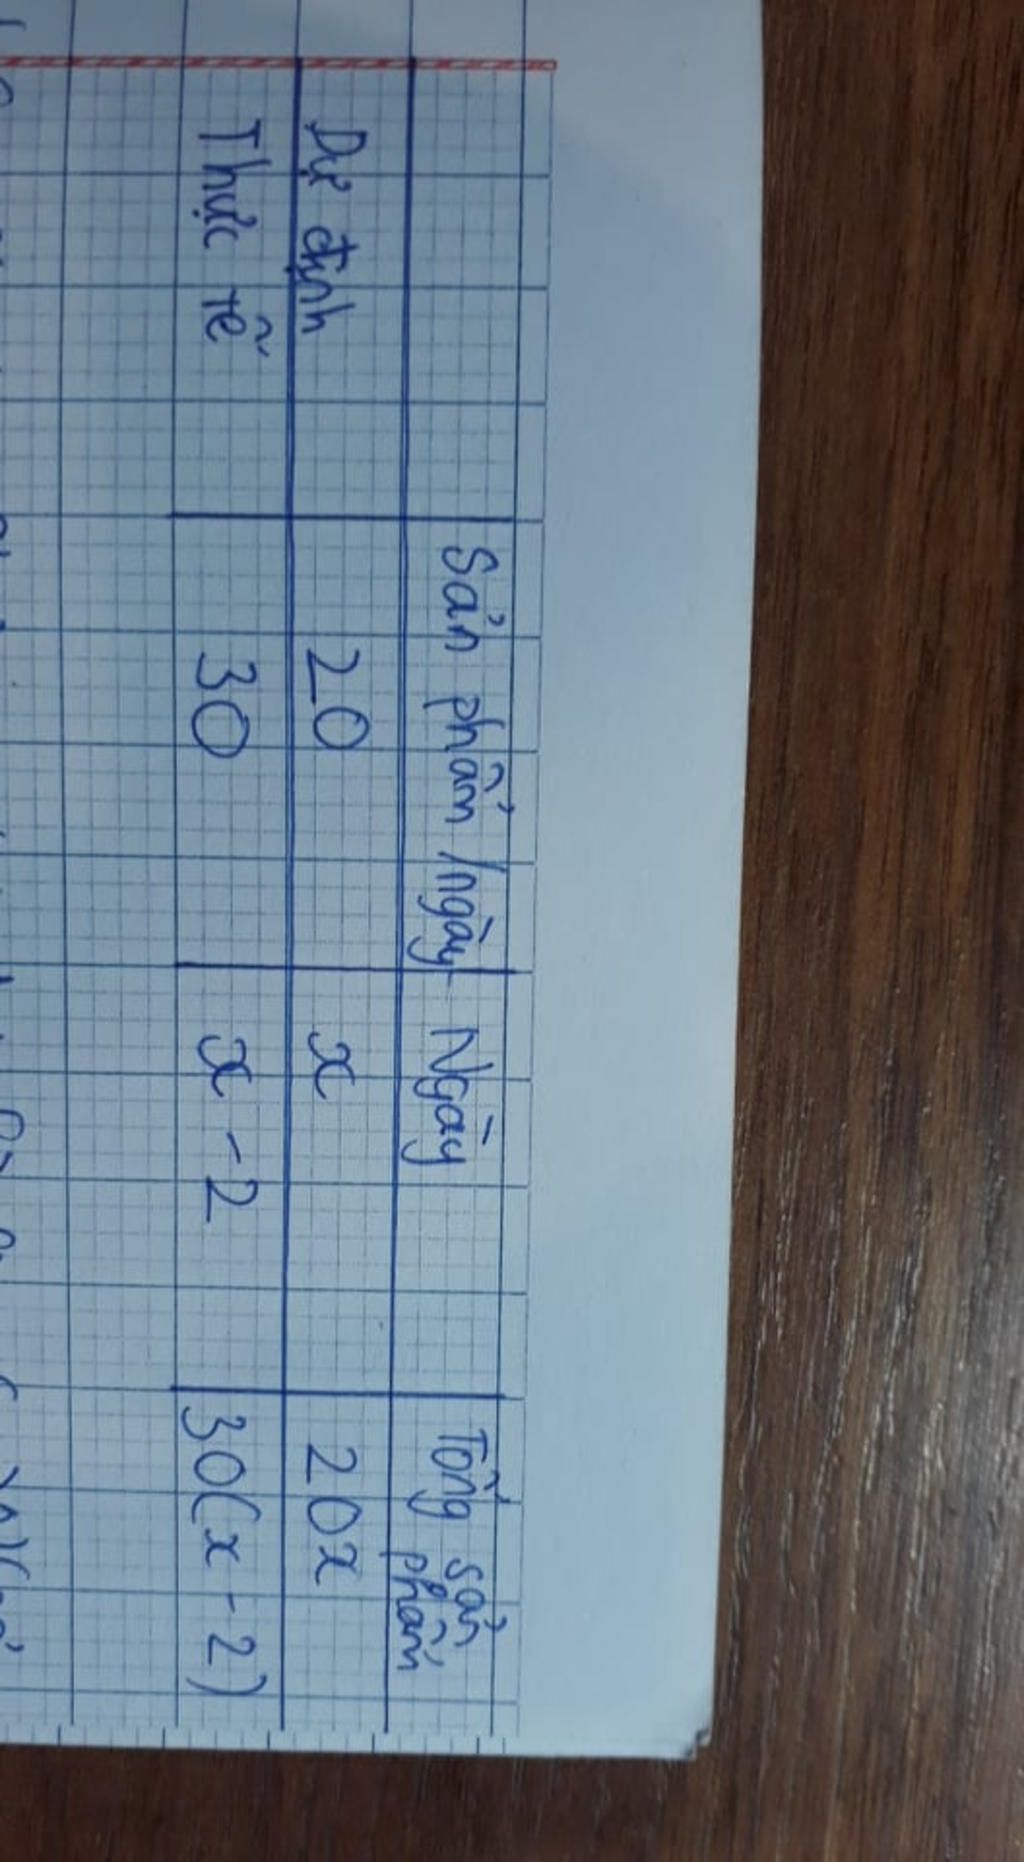 Sản phẩm/ngày Ngày Tổng sản phẩm
Dự định 20 x 20x
Thực tế 30 x - 2 30(x - 2)